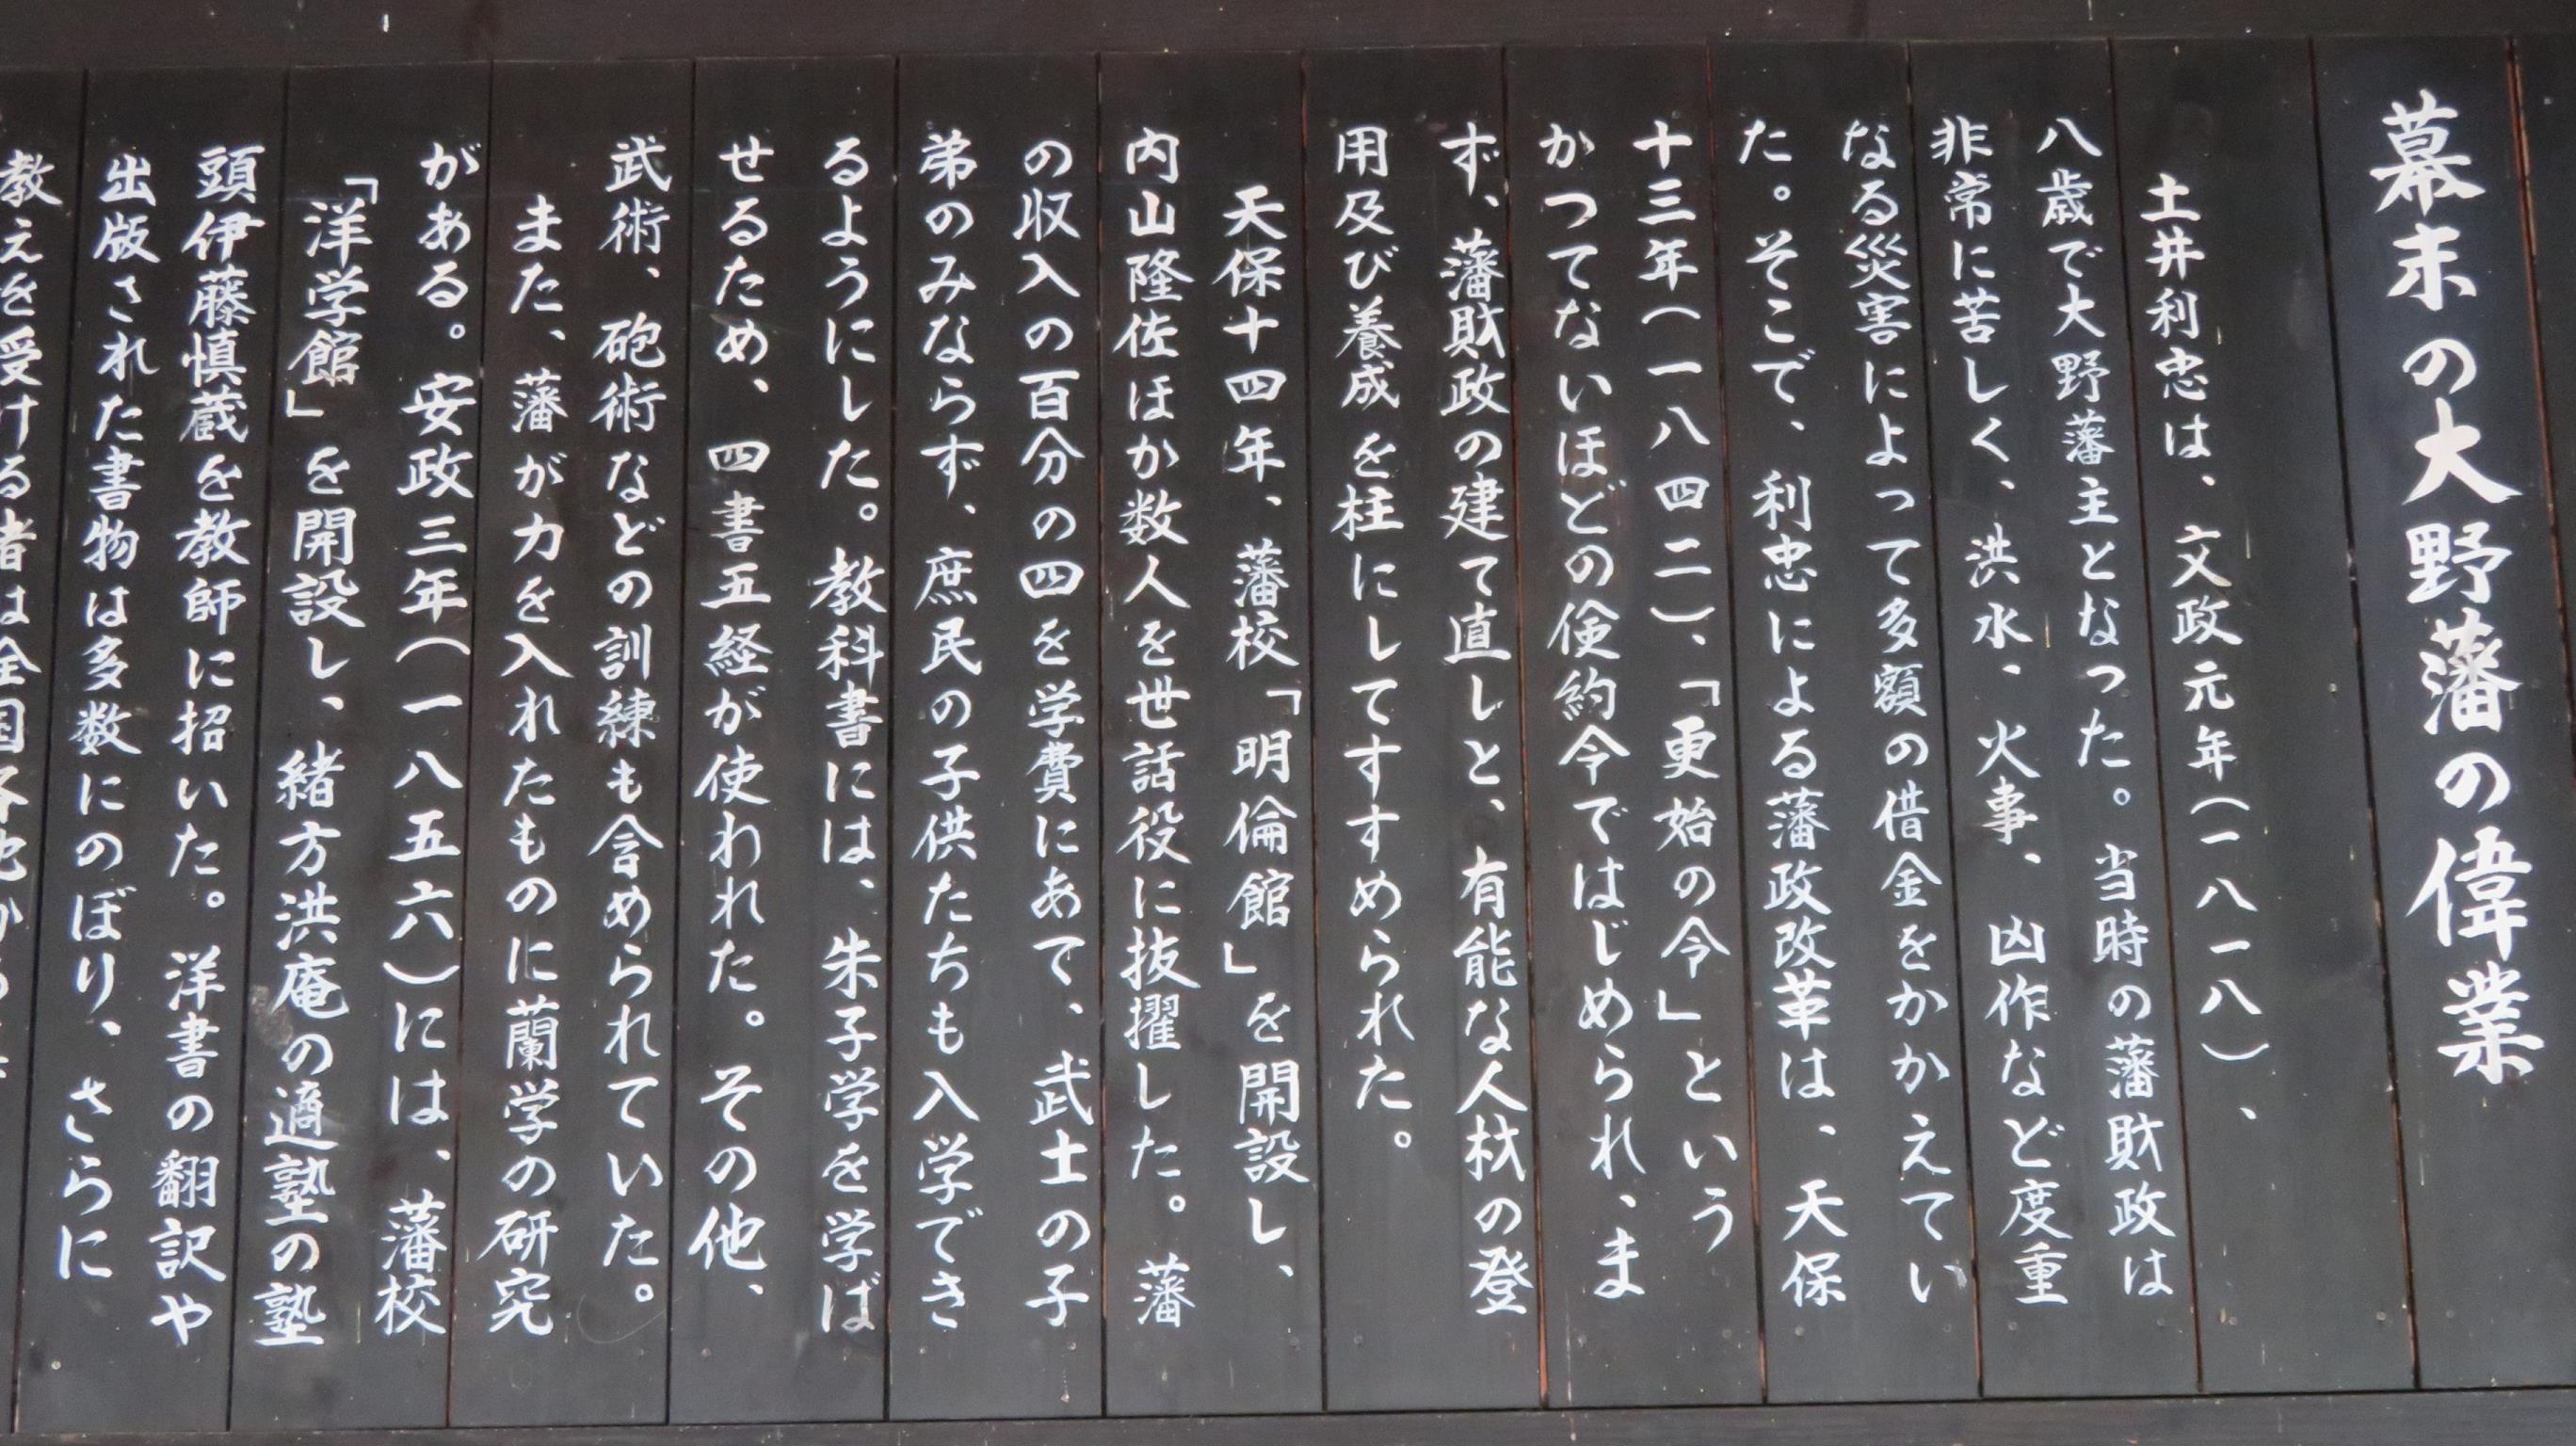 幕末の大野藩の偉業
土井利忠は、文政元年(一八一八)、
八歳で大野藩主となった。当時の藩財政は
非常に苦しく、洪水、火事、凶作など度重
なる災害によって多額の借金をかかえてい
た。そこで、利忠による藩政改革は、天保
十三年(一八四二)、「更始の令」という
かつてないほどの倹約今ではじめられ、ま
ず、藩財政の建て直しと、有能な人材の登
用及び養成を柱にしてすすめられた。
天保十四年、藩校「明倫館」を開設し、
内山隆佐ほか数人を世話役に抜擢した。藩
の収入の百分の四を学費にあて、武士の子
弟のみならず、庶民の子供たちも入学でき
るようにした。教科書には、朱子学を学ば
せるため、四書五経が使われた。その他、
武術、砲術などの訓練も含められていた。
また、藩が力を入れたものに蘭学の研究
がある。安政三年(一八五六)には、藩校
「洋学館」を開設し、緒方洪庵の適塾の塾
頭伊藤慎蔵を教師に招いた。洋書の翻訳や
出版された書物は多数にのぼり、さらに
教えを受ける者は全国各地から